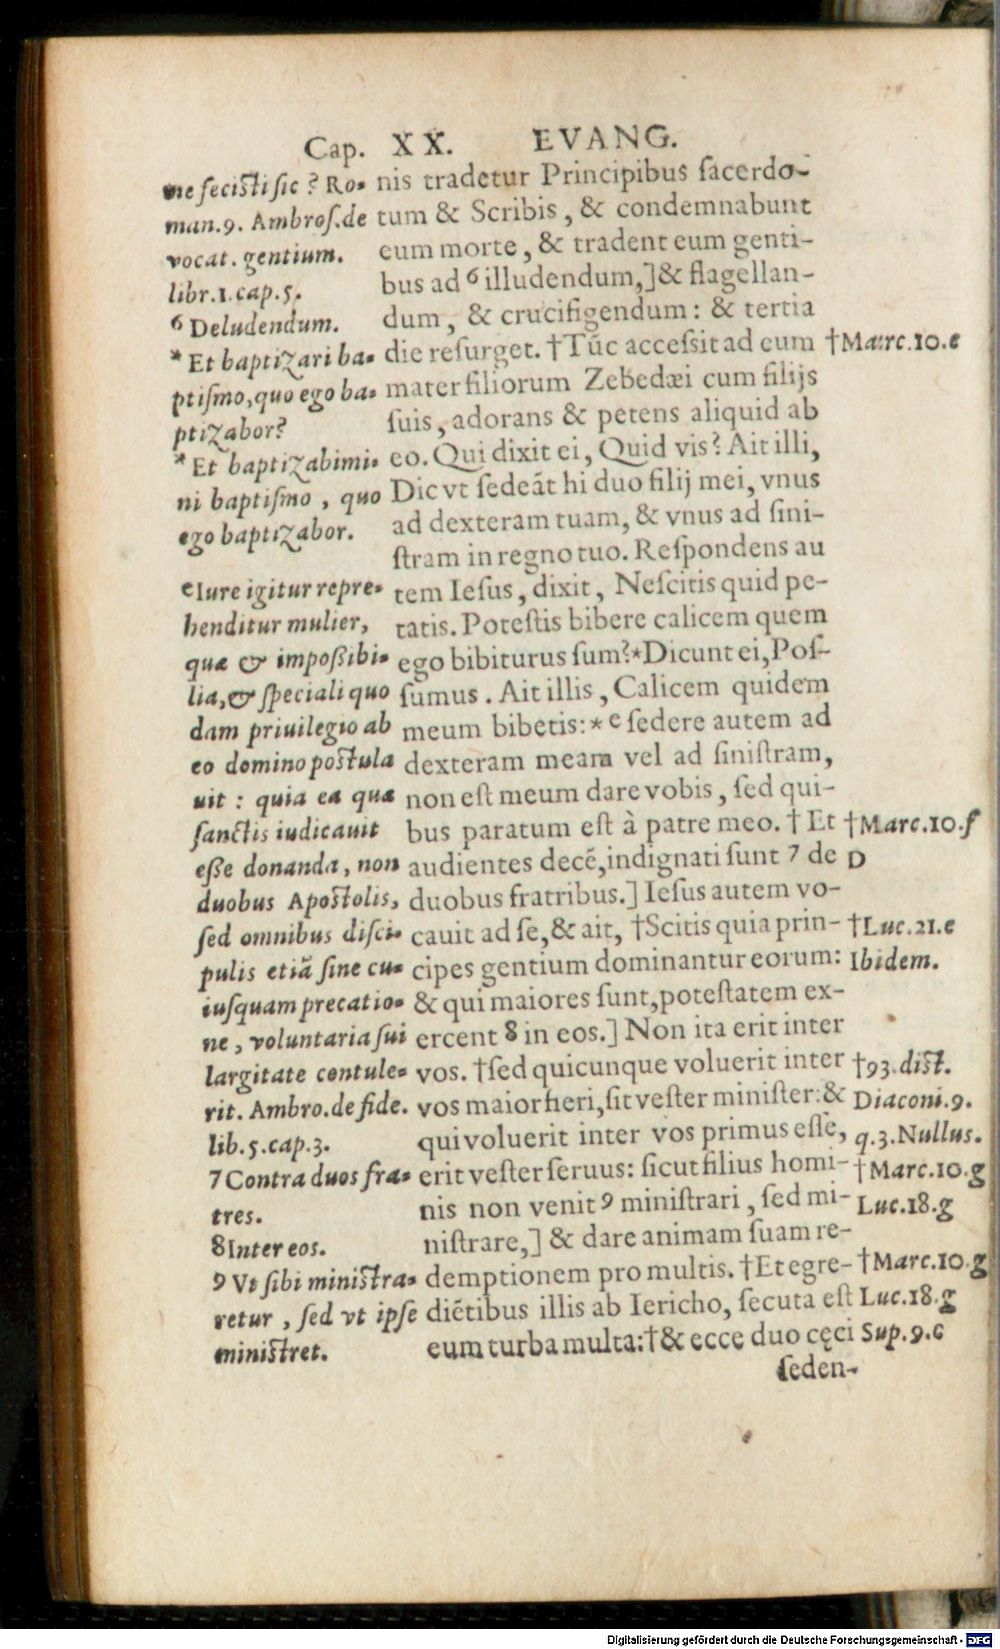 Cap. XX. EVANG.
me feciſti ſic? Ro-
man.9. Ambroſ.de
vocat. gentium.
libr.1.cap.5.
6 Deludendum.
* Et baptizari ba-
ptiſmo, quo ego ba-
ptizabor?
* Et baptizabimi-
ni baptiſmo, quo
ego baptizabor.
e Iure igitur repre-
henditur mulier,
quæ & impoßibi-
lia, & ſpeciali quo
dam priuilegio ab
eo domino poſtula
uit: quia ea quæ
ſanctis iudicauit
eſſe donanda, non
duobus Apoſtolis,
ſed omnibus diſci-
pulis etiã ſine cu-
iuſquam precatio-
ne, voluntaria ſui
largitate contule-
rit. Ambro. de fide.
lib.5.cap.3.
7 Contra duos fra-
tres.
8 Inter eos.
9 Vt ſibi miniſtra-
retur, ſed vt ipſe
miniſtret.
nis tradetur Principibus ſacerdo-
tum & Scribis, & condemnabunt
eum morte, & tradent eum genti-
bus ad 6 illudendum,] & flagellan-
dum, & crucifigendum: & tertia
die reſurget. †Tũc acceſſit ad eum
mater filiorum Zebedæi cum filijs
ſuis, adorans & petens aliquid ab
eo. Qui dixit ei, Quid vis? Ait illi,
Dic vt ſedeãt hi duo filij mei, vnus
ad dexteram tuam, & vnus ad ſini-
ſtram in regno tuo. Reſpondens au
tem Ieſus, dixit, Neſcitis quid pe-
tatis. Poteſtis bibere calicem quem
ego bibiturus ſum?* Dicunt ei, Poſ-
ſumus. Ait illis, Calicem quidem
meum bibetis: * e ſedere autem ad
dexteram meam vel ad ſiniſtram,
non eſt meum dare vobis, ſed qui-
bus paratum eſt à patre meo. † Et
audientes decẽ, indignati ſunt 7 de
duobus fratribus.] Ieſus autem vo-
cauit ad ſe, & ait, †Scitis quia prin-
cipes gentium dominantur eorum:
& qui maiores ſunt, poteſtatem ex-
ercent 8 in eos.] Non ita erit inter
vos. †ſed quicunque voluerit inter
vos maior fieri, ſit veſter miniſter: &
qui voluerit inter vos primus eſſe,
erit veſter ſeruus: ſicut filius homi-
nis non venit 9 miniſtrari, ſed mi-
niſtrare,] & dare animam ſuam re-
demptionem pro multis. †Et egre-
diẽtibus illis ab Iericho, ſecuta eſt
eum turba multa: †& ecce duo cęci
ſeden-
†Marc.10.e
†Marc.10.f
D
†Luc.21.e
Ibidem.
†93.diſt.
Diaconi.9.
q.3.Nullus.
†Marc.10.g
Luc.18.g
†Marc.10.g
Luc.18.g
Sup.9.c
Digitalisierung gefördert durch die Deutsche Forschungsgemeinschaft - DFG